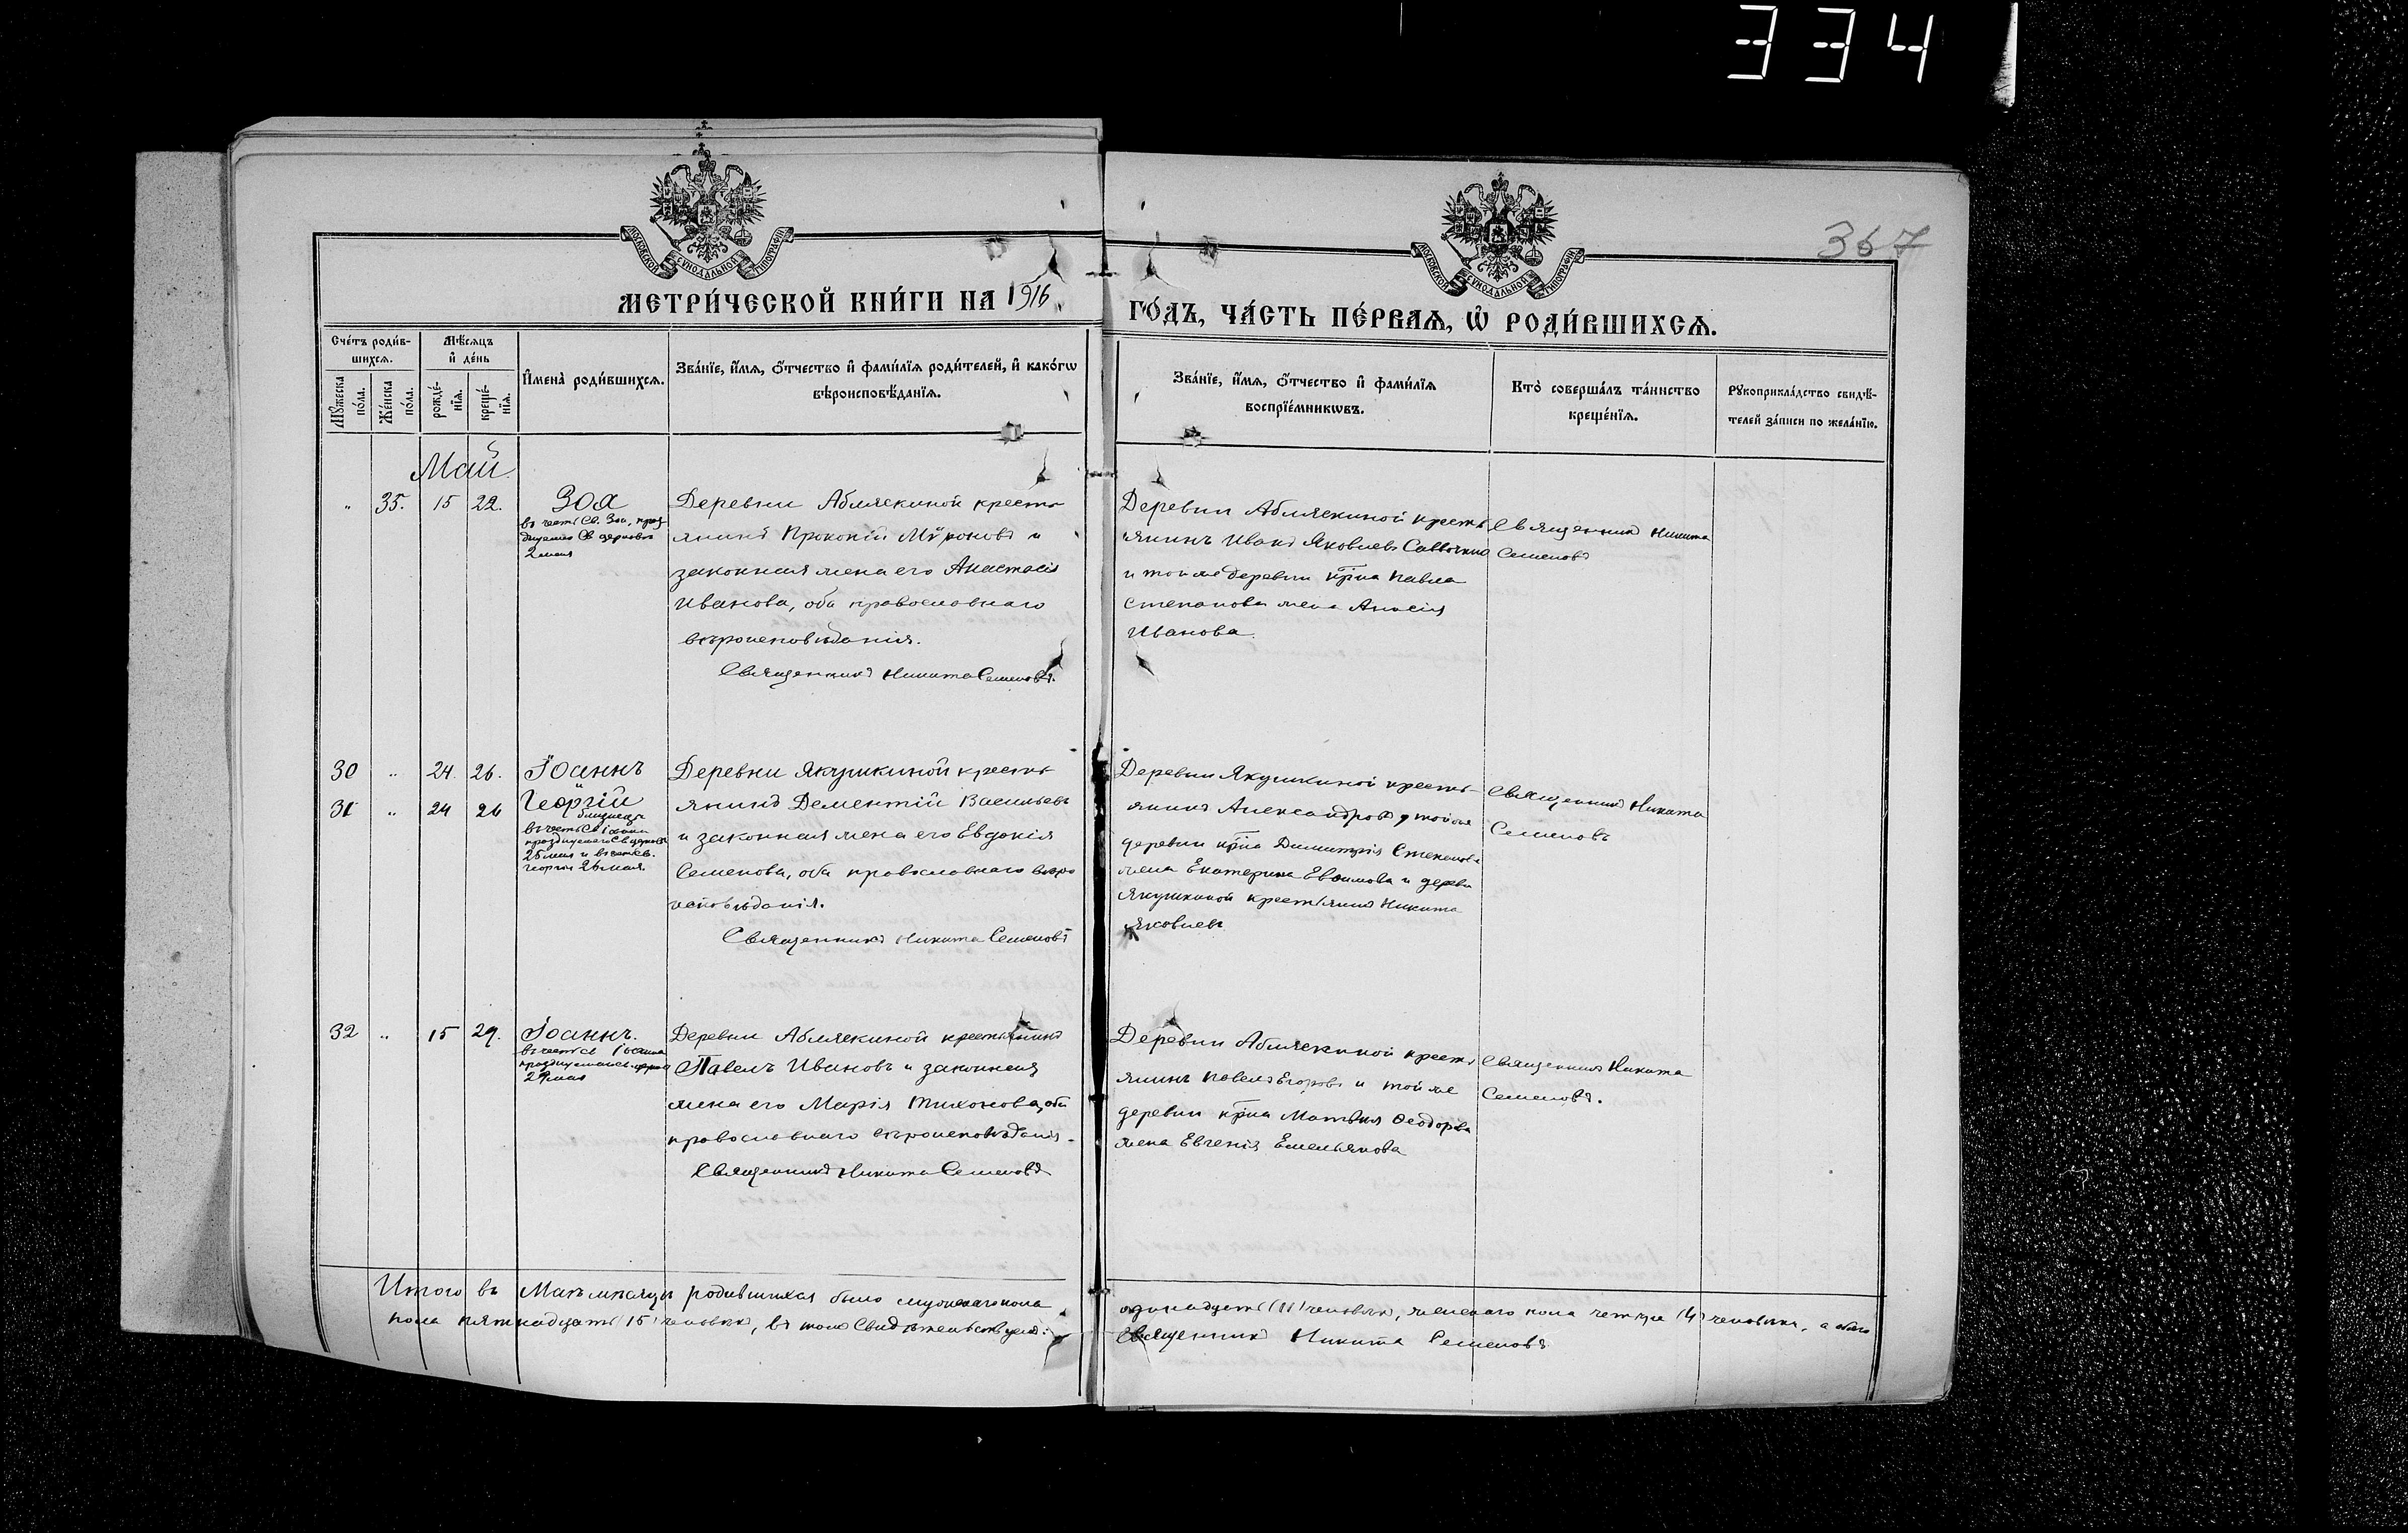 334
367
МОСКОВСКОЙ СУНОДАЛЬНОЙ ТИПОГРАФІИ
МОСКОВСКОЙ СУНОДАЛЬНОЙ ТИПОГРАФІИ
МЕТРИ́ЧЕСКОЙ КНИ́ГИ НА 1916
ГО́ДЪ, ЧА́СТЬ ПЕ́РВАѦ, Ѽ РОДИ́ВШИХСѦ.
Сче́тъ роди́в-
шихсѧ.
Мꙋжеска
по́ла.
Же́нска
по́ла.
Мѣ́сѧцъ
и҆ де́нь
рожде́-
нїѧ.
креще́-
нїѧ.
И҆мена̀ роди́вшихсѧ.
Зва́нїе, и҆́мѧ, ѻ҆́тчество и҆ фами́лїѧ роди́телей, и҆ како́гѡ
вѣроисповѣ́данїѧ.
Зва́нїе, и҆́мѧ, ѻ҆́тчество и҆ фами́лїѧ
воспрїе́мникѡвъ.
Кто̀ соверша́лъ та́инство
креще́нїѧ.
Рꙋкоприкла́дство свидѣ́-
телей за́писи по жела́нїю.
Май
" 35. 15 22. Зоа
въ честь Св. Зои, праз
днуемой Св церковью
2 мая
Деревни Аблязкиной кресть
янинъ Прокопій Мѵроновъ и
законная жена его Анастасія
Иванова, оба православнаго
вѣроисповѣданія.
Священникъ Никита Семеновъ.
Деревни Аблязкиной кресть
янинъ Иванъ Яковлевъ
и той же деревни кр̄на Павла
Степанова жена Анисія
Иванова.
Священникъ Никита
Семеновъ
30 " 24. 26. Іоаннъ
31 " 24 26 Георгій
близнецы
въ честь Св Іоанна
празднуемаго Св церковью
25 мая и въ честь Св.
Георгія 26 мая.
Деревни Якушкиной кресть
янинъ Дементій Васильевъ
и законная жена его Евдокія
Семенова, оба православнаго вѣро
исповѣданія.
Священникъ Никита Семеновъ
Деревни Якушкиной кресть-
янинъ Александровъ, той же
деревни кр̄на Димитрія Степанова
жена Екатерина Евѳимова и дерев
Якушкиной крестьянинъ Никита
Яковлевъ
Священникъ Никита
Семеновъ
32 " 15 29. Іоаннъ.
въ честь Св Іоанна
празднуемаго Св. церковью
29 мая
Деревни Аблязкиной крестьянинъ
Павелъ Ивановъ и законная
жена его Марія Тихонова, оба
православнаго вѣроисповѣданія.
Священникъ Никита Семеновъ
Деревни Аблязкиной кресть
янинъ Павелъ Егоровъ и той же
деревни кр̄на Матвѣя Ѳеодорова
жена Евгенія Емельянова
Священникъ Никита
Семеновъ.
Итого въ Маѣ мѣсяцѣ родившихся было мужескаго пола
одинадцать (11) человѣкъ, женскаго пола четыре (4) человѣка, а обоего
пола пятнадцать (15) человѣкъ, въ томъ свидѣтельствуемъ:
Священникъ Никита Семеновъ